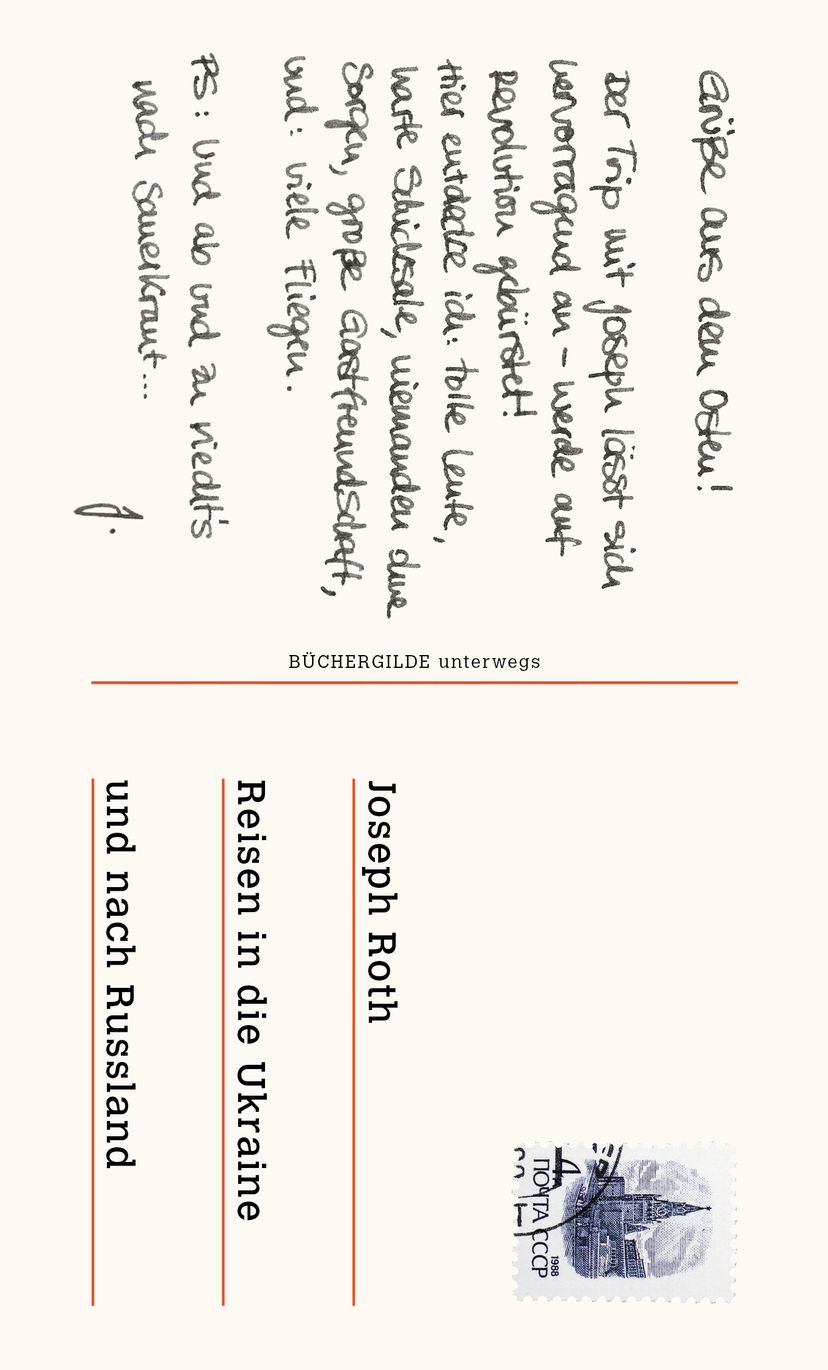 Grüße aus dem Osten!
Der Trip mit Joseph lässt sich
hervorragend an – werde auf
Revolution gebürstet!
Hier entdecke ich: tolle Leute,
harte Schicksale, niemanden ohne
Sorgen, große Gastfreundschaft,
und: viele Fliegen.
PS: Und ab und zu riecht's
nach Sauerkraut...
J.
BÜCHERGILDE unterwegs
Joseph Roth
Reisen in die Ukraine
und nach Russland
4
ПОЧТА СССР
1988